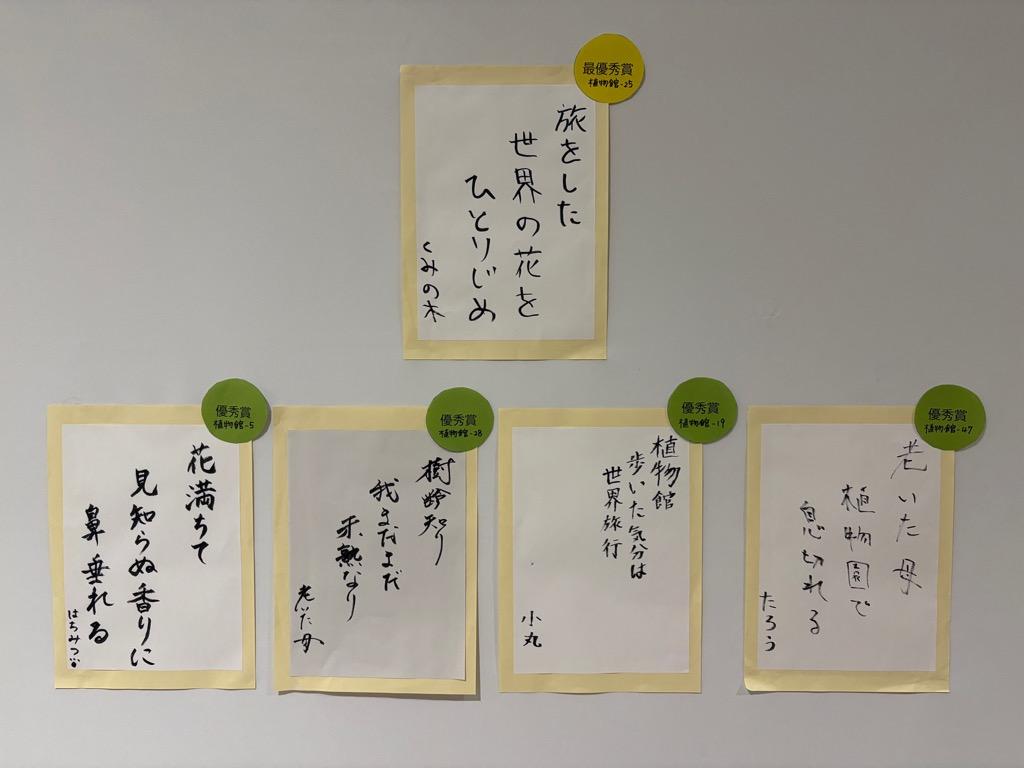 最優秀賞
植物館-25
旅をした
世界の花を
ひとりじめ
くみの木
優秀賞
植物館-5
花満ちて
見知らぬ香りに
鼻垂れる
はちみつ
優秀賞
植物館-28
樹齢知り
我まだまだ
未熟なり
老いた母
優秀賞
植物館-19
植物館
歩いた気分は
世界旅行
小丸
優秀賞
植物館-47
老いた母
植物園で
息切れる
たろう